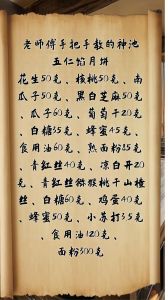 老师傅手把手教的神池
五仁馅月饼
花生50克、核桃50克、南
瓜子50克、黑白芝麻50克
、瓜子60克、葡萄干20克
、白糖35克、蜂蜜45克、
食用油60克、熟面粉25克
、青红丝40克、凉白开20
克、青红丝猕猴桃干山楂
丝、白糖60克、鸡蛋40克
、蜂蜜50克、小苏打3.5克
食用油120克、
面粉300克